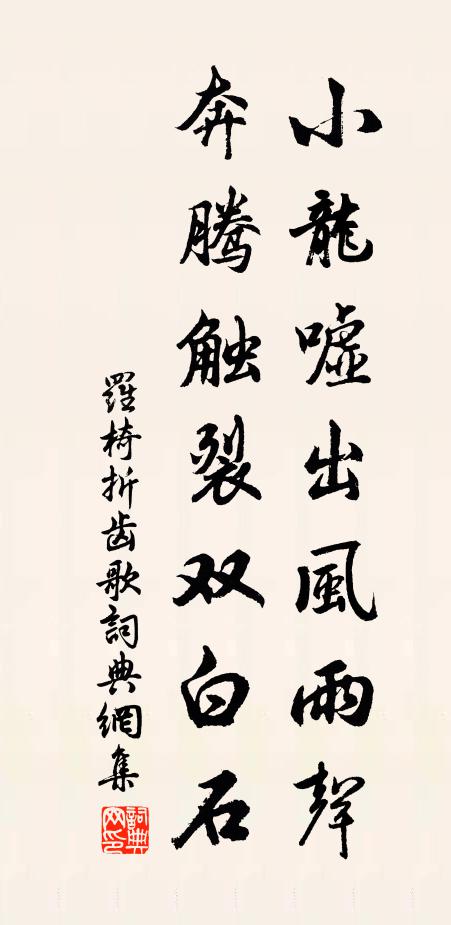 小龍嘘出風雨聲
奔騰触裂双白石
羅椅折齒歌詞典網集
詞典網印